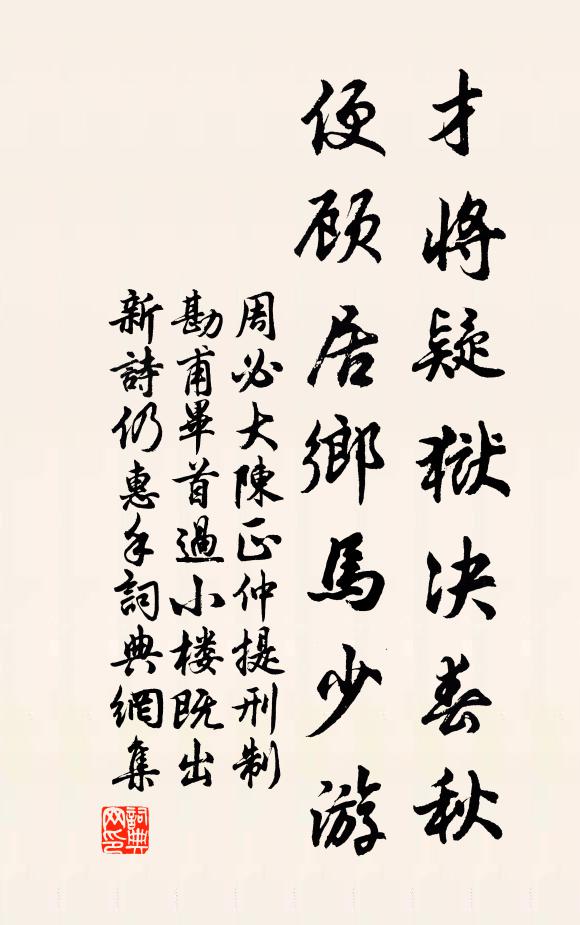 才將疑獄決春秋
便顧居鄉馬少游
周必大陳正仲提刑制
勘甫畢首過小楼既出
新詩仍惠手詞典網集
詞典网印